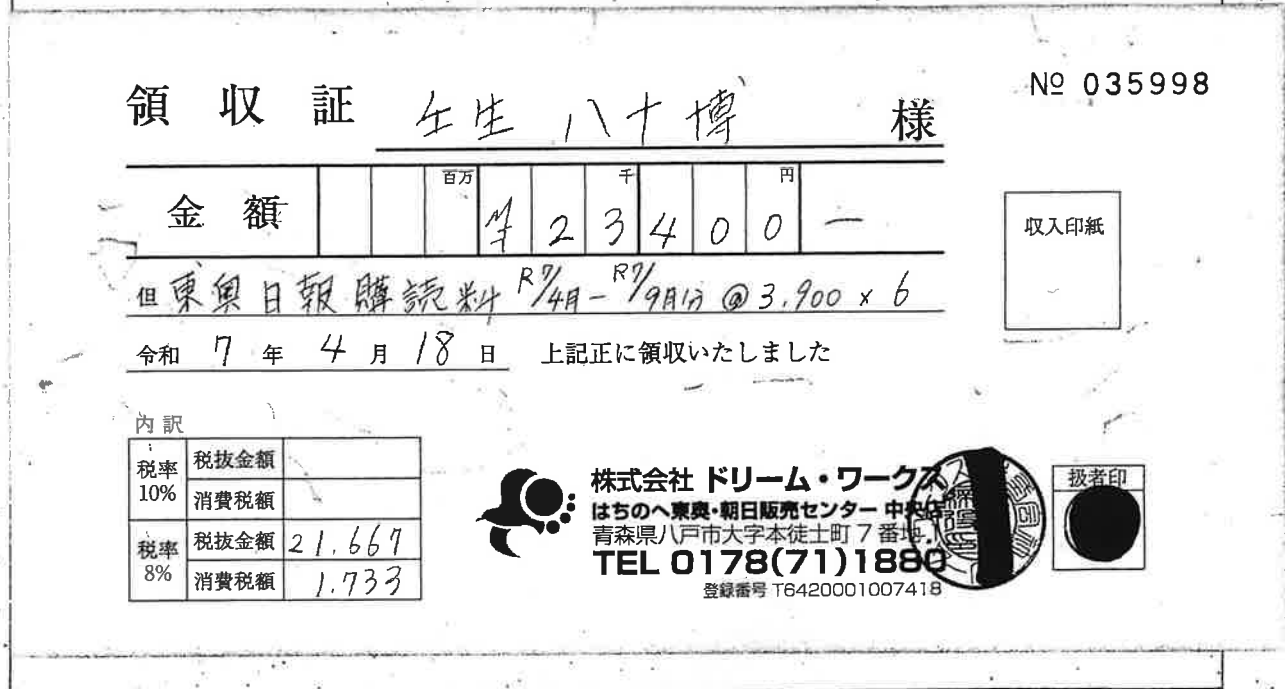 № 035998
領収証 壬生 八十博 様
金額 百万 千 円 ¥23400―
但 東奥日報購読料 R7/4月-R7/9月分 @3,900×6
令和 7 年 4 月 18 日 上記正に領収いたしました
収入印紙
内訳
税率10% 税抜金額
消費税額
税率8% 税抜金額 21,667
消費税額 1,733
株式会社 ドリーム・ワークス
はちのへ東奥・朝日販売センター 中央店
青森県八戸市大字本徒士町7番地1
TEL 0178(71)1880
登録番号 T6420001007418
扱者印